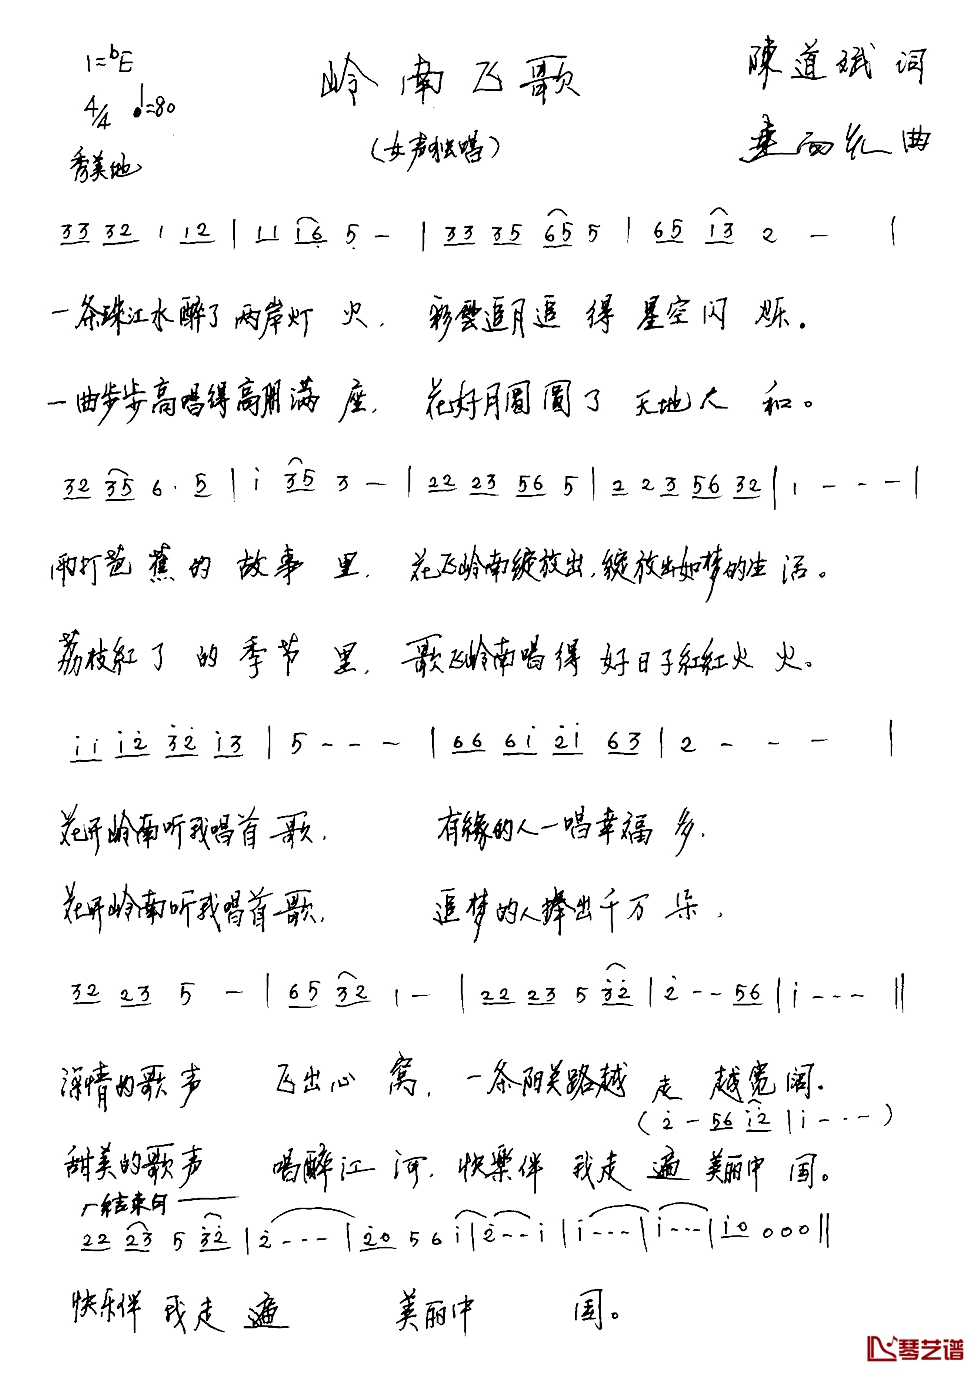 1=ᵇE
岭南飞歌
陳道斌 词
4/4 ♩=80
(女声独唱)
曲
秀美地
33 32 1 12 | 11 i6 5 - | 33 35 65 5 | 65 i3 2 - |
一条珠江水醉了两岸灯火，彩雲追月追得星空闪烁。
一曲步步高唱得高朋满座，花好月圆圆了天地人和。
32 35 6· 5 | i 35 3 - | 22 23 56 5 | 2 2 3 56 32 | 1 - - - |
雨打芭蕉的故事里，花飞岭南绽放出，绽放出如梦的生活。
荔枝紅了的季节里，歌飞岭南唱得好日子紅紅火火。
ii i2 32 i3 | 5 - - - | 66 6i 2i 63 | 2 - - - |
花开岭南听我唱首歌，有緣的人一唱幸福多，
花开岭南听我唱首歌，追梦的人捧出千万朵，
32 23 5 - | 65 32 1 - | 22 23 5 32 | 2 - - 56 | i - - - ||
深情的歌声飞出心窝，一条阳关路越走越宽阔。
(2 - 56 i2 | i - - -)
甜美的歌声唱醉江河，快樂伴我走遍美丽中国。
结束句
22 23 5 32 | 2 - - - | 20 5 6 i | 2 - - i | i - - - | i - - - | i0 0 0 0 ||
快乐伴我走遍美丽中国。
琴艺谱